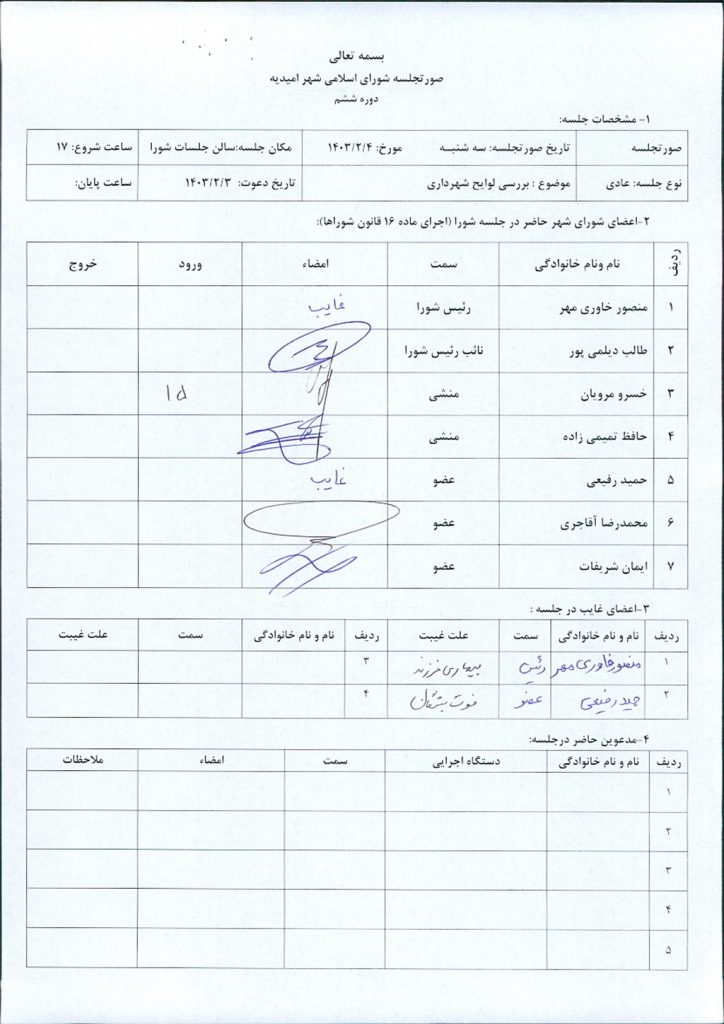 بسمه تعالی
صورتجلسه شورای اسلامی شهر امیدیه
دوره ششم
۱- مشخصات جلسه:
صورتجلسه تاریخ صورتجلسه: سه شنبـه مورخ: ۱۴۰۳/۲/۴ مکان جلسه:سالن جلسات شورا ساعت شروع: ۱۷
نوع جلسه: عادی موضوع : بررسی لوایح شهرداری تاریخ دعوت: ۱۴۰۳/۲/۳ ساعت پایان:
۲-اعضای شورای شهر حاضر در جلسه شورا (اجرای ماده ۱۶ قانون شوراها):
ردیف نام ونام خانوادگی سمت امضاء ورود خروج
۱ منصور خاوری مهر رئیس شورا غایب
۲ طالب دیلمی پور نائب رئیس شورا
۳ خسرو مرویان منشی ۱۵
۴ حافظ تمیمی زاده منشی
۵ حمید رفیعی عضو غایب
۶ محمدرضا آقاجری عضو
۷ ایمان شریفات عضو
۳-اعضای غایب در جلسه :
ردیف نام و نام خانوادگی سمت علت غیبت ردیف نام و نام خانوادگی سمت علت غیبت
۱ منصور خاوری مهر رئیس بیماری فرزند ۳
۲ حمید رفیعی عضو فوت بستگان ۴
۴-مدعوین حاضر درجلسه:
ردیف نام و نام خانوادگی دستگاه اجرایی سمت امضاء ملاحظات
۱
۲
۳
۴
۵